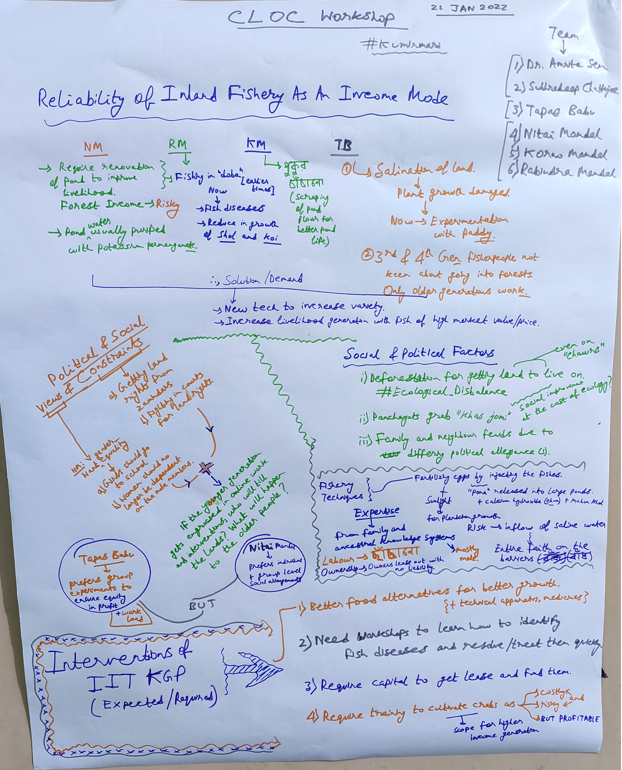 CLOC Workshop
21 JAN 2022
#Kumirmari
Team
1) Dr. Amrita Sen
2) Subhradeep Chatterjee
3) Tapas Babu
4) Nitai Mandal
5) Korno Mandal
6) Rabindra Mandal
Reliability of Inland Fishery As An Income Mode
NM
→ Require renovation
of pond to improve
livelihood.
Forest Income → Risky
→ Pond water usually purified
with potassium permanganate.
RM
→ Fishing in "doba" [earlier
times]
Now
→ Fish diseases
→ Reduce in growth
of Shol and Koi
KM
→ পুকুর
(scraping
of pond
floor for
better pond
life)
TB
① Salination of land.
Plant growth damaged
Now → Experimentation
with Paddy.
② 3rd & 4th Gen Fisherpeople not
keen about going into forests
Only older generations work.
∴ Solution/Demand
→ New tech to increase variety.
→ Increase livelihood generation with fish of high market value/price.
Political & Social
Views & Constraints
a) Getting land
rights from
Zamindars
b) Fighting in courts
for land rights
NM: gender
equality
a) Girls should go
to school
b) Women should no
longer be dependent
on the male members.
If the younger generation
gets engrossed in online work
and studies, who will till
the lands? What will happen
to the older people?
Social & Political Factors
i) Deforestation for getting land to live on.
even on
"chaurs"
#Ecological Disbalance
ii) Panchayats grab "khas jomi"
Social improvement
at the cost of ecology?
iii) Family and neighbour feuds due to
differing political allegiance(s).
Fishery
Techniques
Fertilizing eggs by injecting the fishes.
"Pona" released into large ponds.
Sunlight
for Plankton growth
Expertise
From family and
ancestral knowledge systems
Risk → inflow of saline water
Entire faith on the
barriers
Labour →
mostly
male
Ownership: Owners lease out with
no liability
Tapas Babu
prefers group
experiments to
ensure equity
in profit
+ work
load
BUT
Nitai Mandal
prefers individual
+ group level
social arrangements
Interventions of
IIT KGP
(Expected/Required)
1) Better food alternatives for better growth.
{+ technical apparatus, medicines}
2) Need workshops to learn how to identify
fish diseases and resolve/treat them quickly
3) Require capital to get lease and fund them.
4) Require training to cultivate crabs as
costly &
risky and
BUT PROFITABLE
scope for higher
income generation